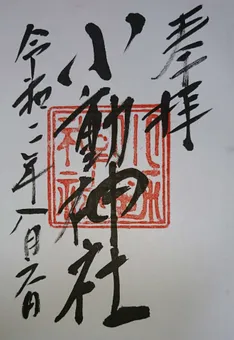 奉拝
小動神社
令和二年八月六日